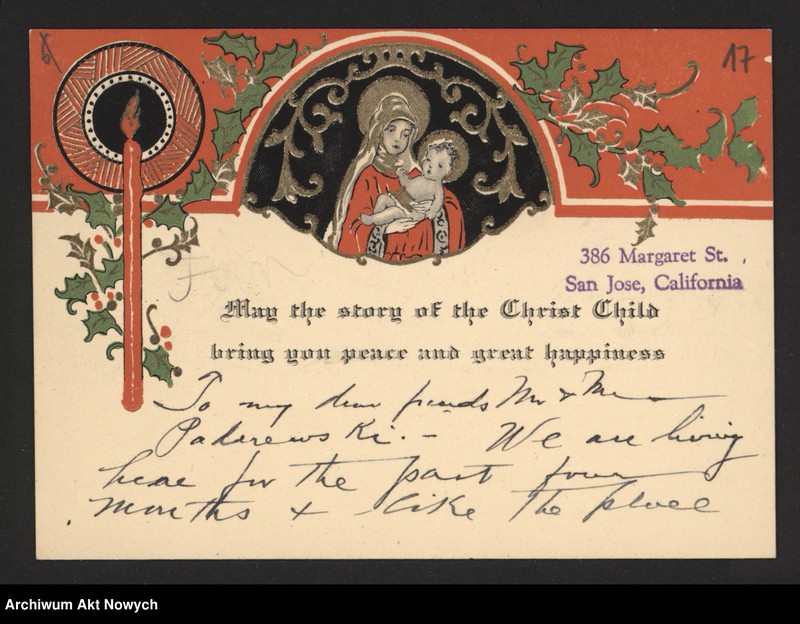 17
386 Margaret St.,
San Jose, California
May the story of the Christ Child
bring you peace and great happiness
To my dear friends Mr & Mrs
Paderewski. - We are living
hear for the past four
months & like the place
Archiwum Akt Nowych